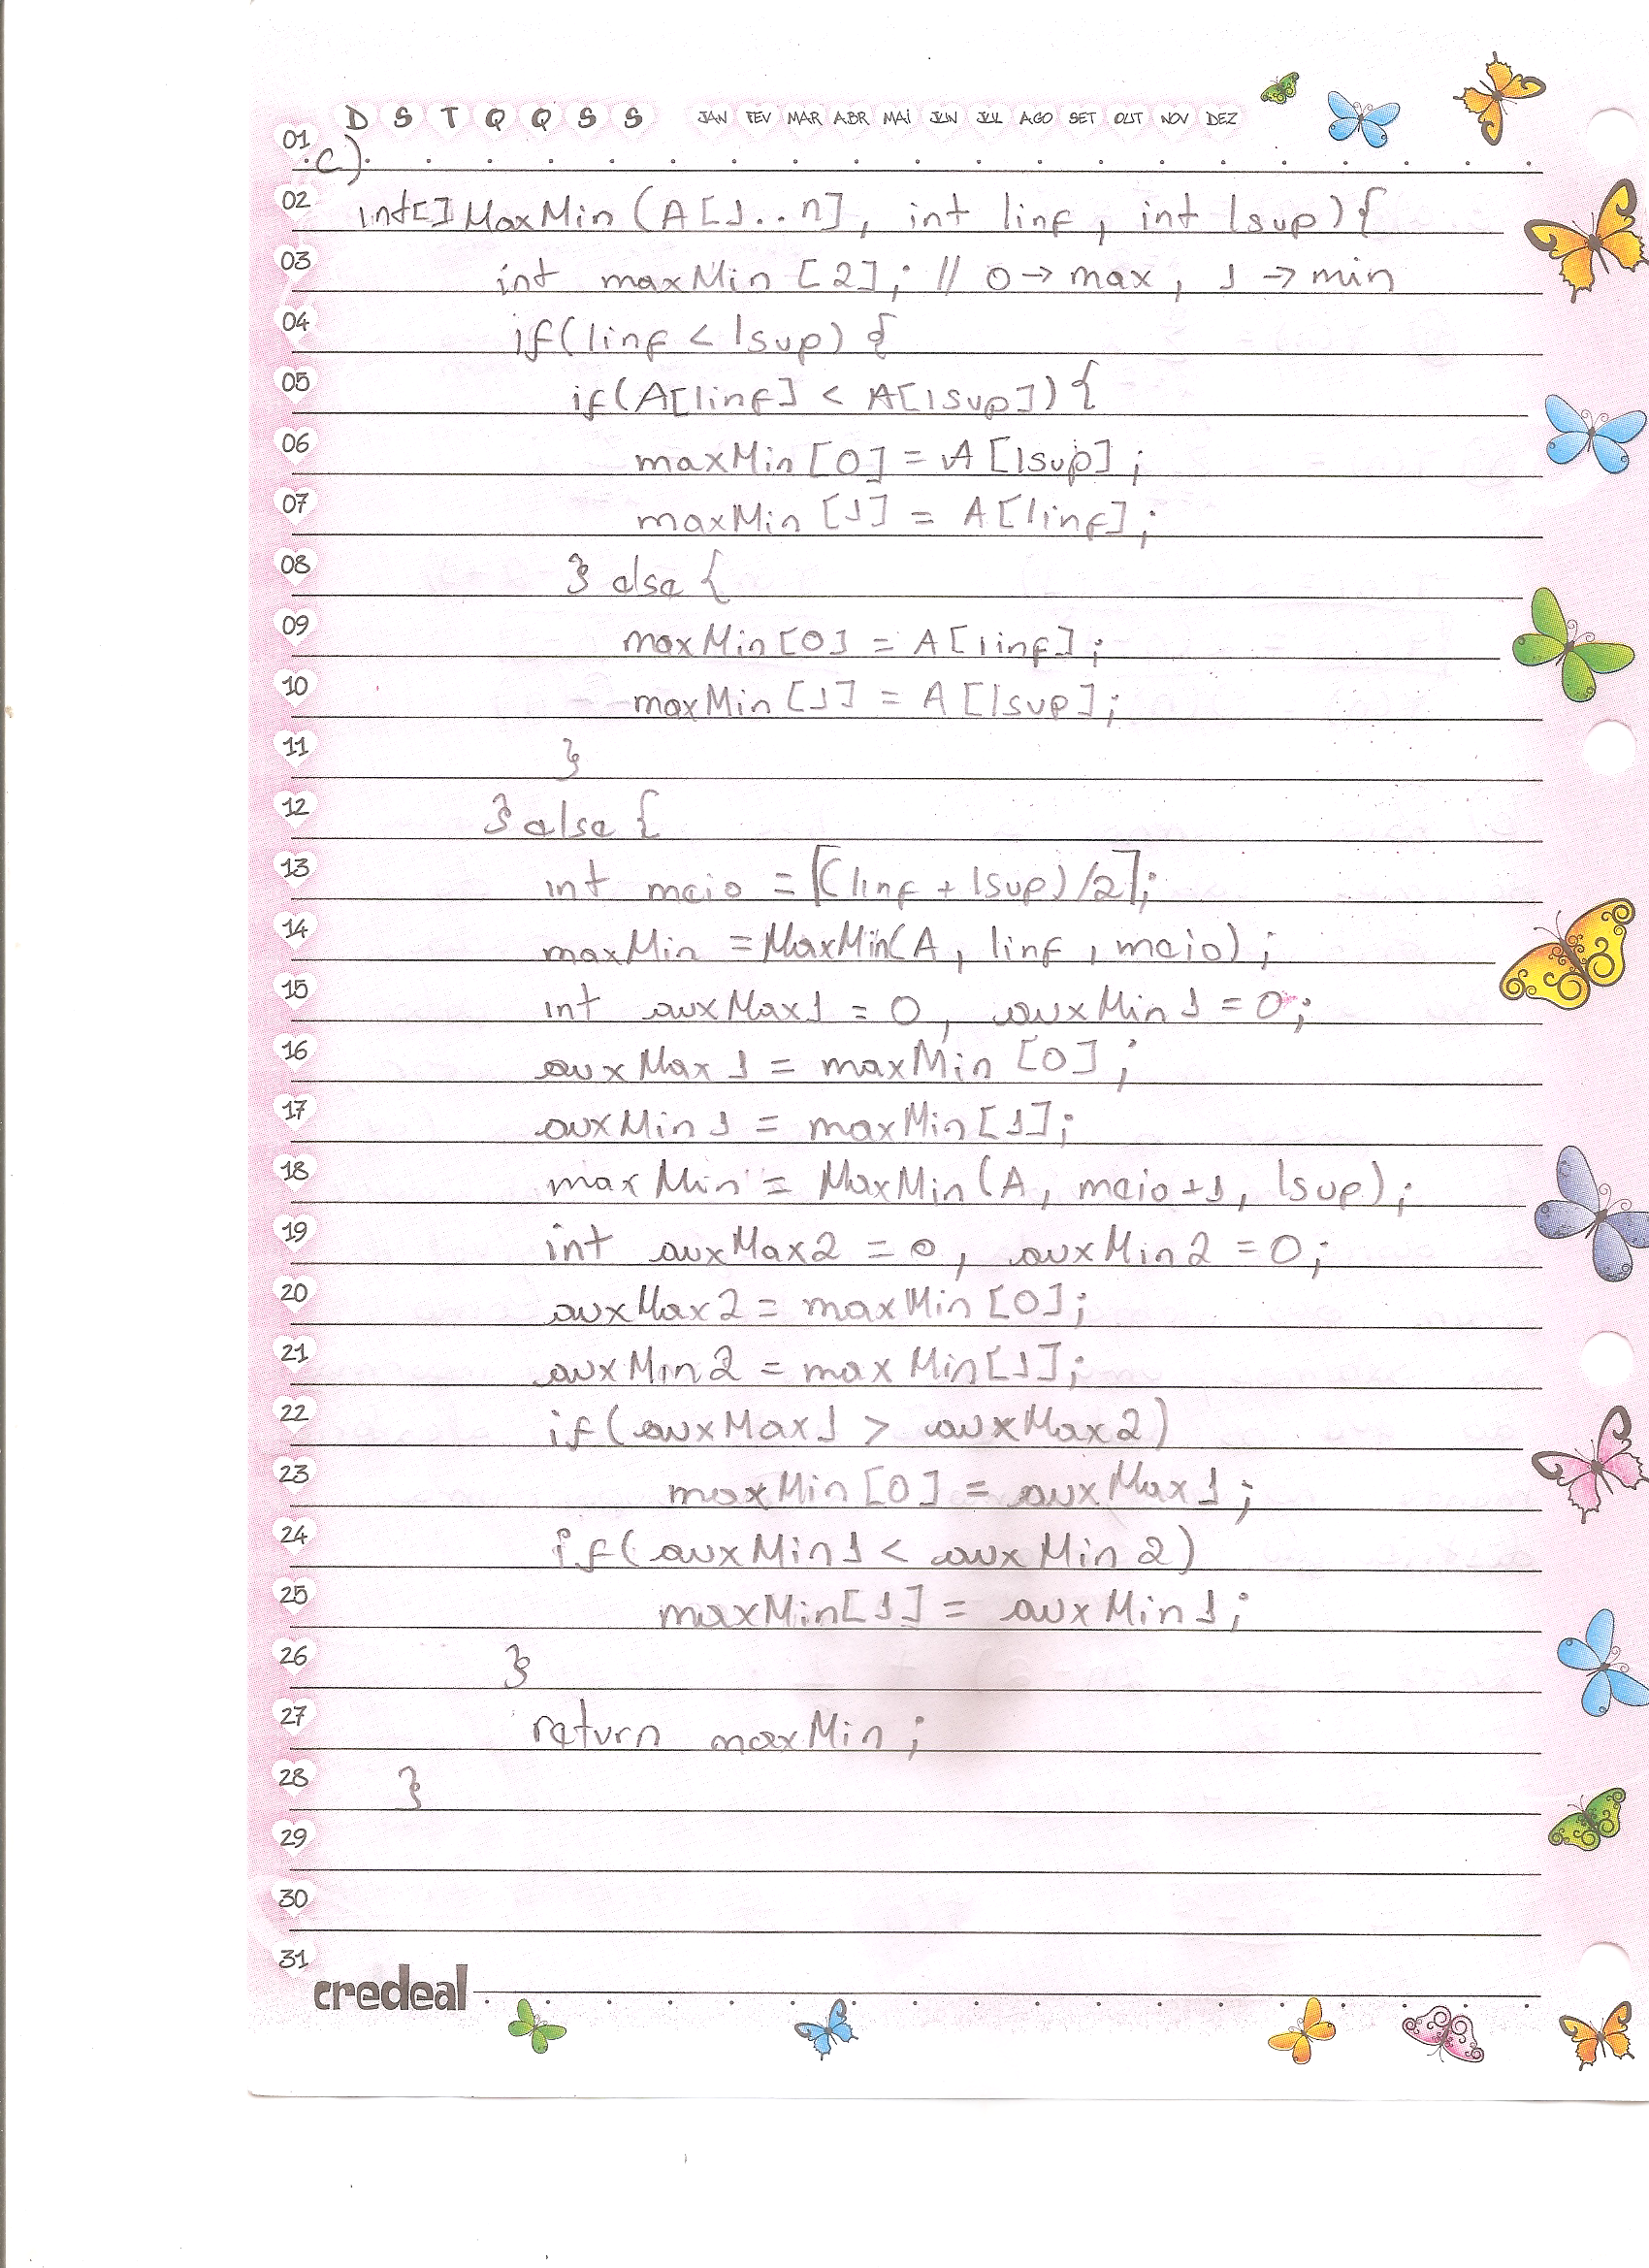 D S T Q Q S S JAN FEV MAR ABR MAI JUN JUL AGO SET OUT NOV DEZ
01 c)
02 int[] MaxMin (A[1..n], int linf, int lsup){
03 int maxMin [2]; // 0→max, 1→min
04 if(linf < lsup) {
05 if(A[linf] < A[lsup]){
06 maxMin[0] = A[lsup];
07 maxMin[1] = A[linf];
08 } else {
09 maxMin[0] = A[linf];
10 maxMin[1] = A[lsup];
11 }
12 } else {
13 int meio = ⌈(linf + lsup)/2⌉;
14 maxMin = MaxMin(A, linf, meio);
15 int auxMax1 = 0, auxMin1 = 0;
16 auxMax1 = maxMin[0];
17 auxMin1 = maxMin[1];
18 maxMin = MaxMin(A, meio+1, lsup);
19 int auxMax2 = 0, auxMin2 = 0;
20 auxMax2 = maxMin[0];
21 auxMin2 = maxMin[1];
22 if(auxMax1 > auxMax2)
23 maxMin[0] = auxMax1;
24 if(auxMin1 < auxMin2)
25 maxMin[1] = auxMin1;
26 }
27 return maxMin;
28 }
29
30
31
credeal